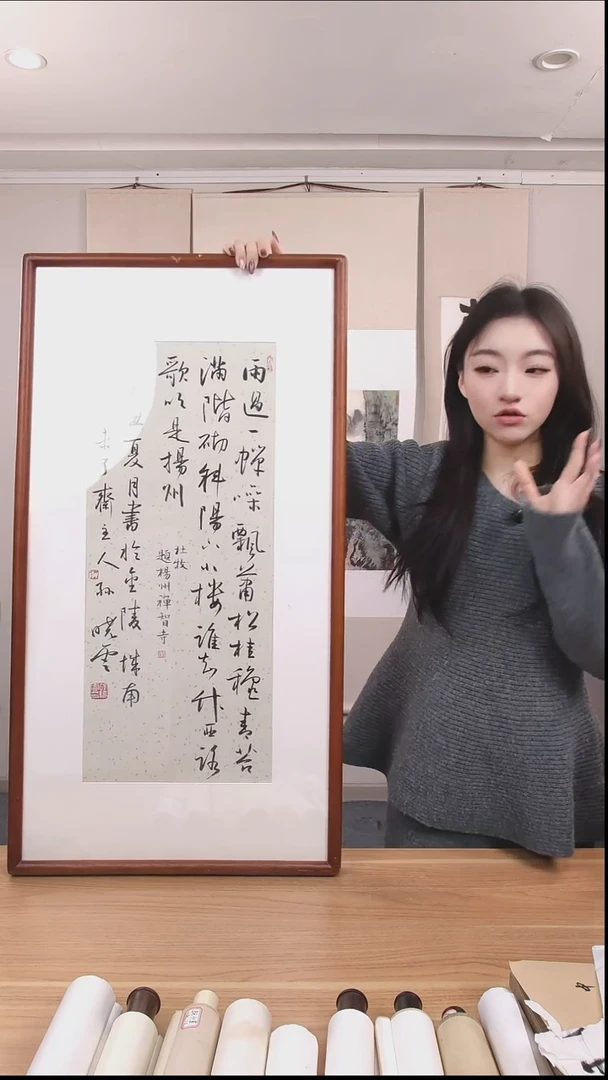 雨過一蟬噪飄蕭松桂穐青苔
滿階砌斜陽下小楼誰知竹西路
歌吹是揚州
杜牧
題揚州禪智寺
夏月書於金陵城南
未了齋主人孫晓雲